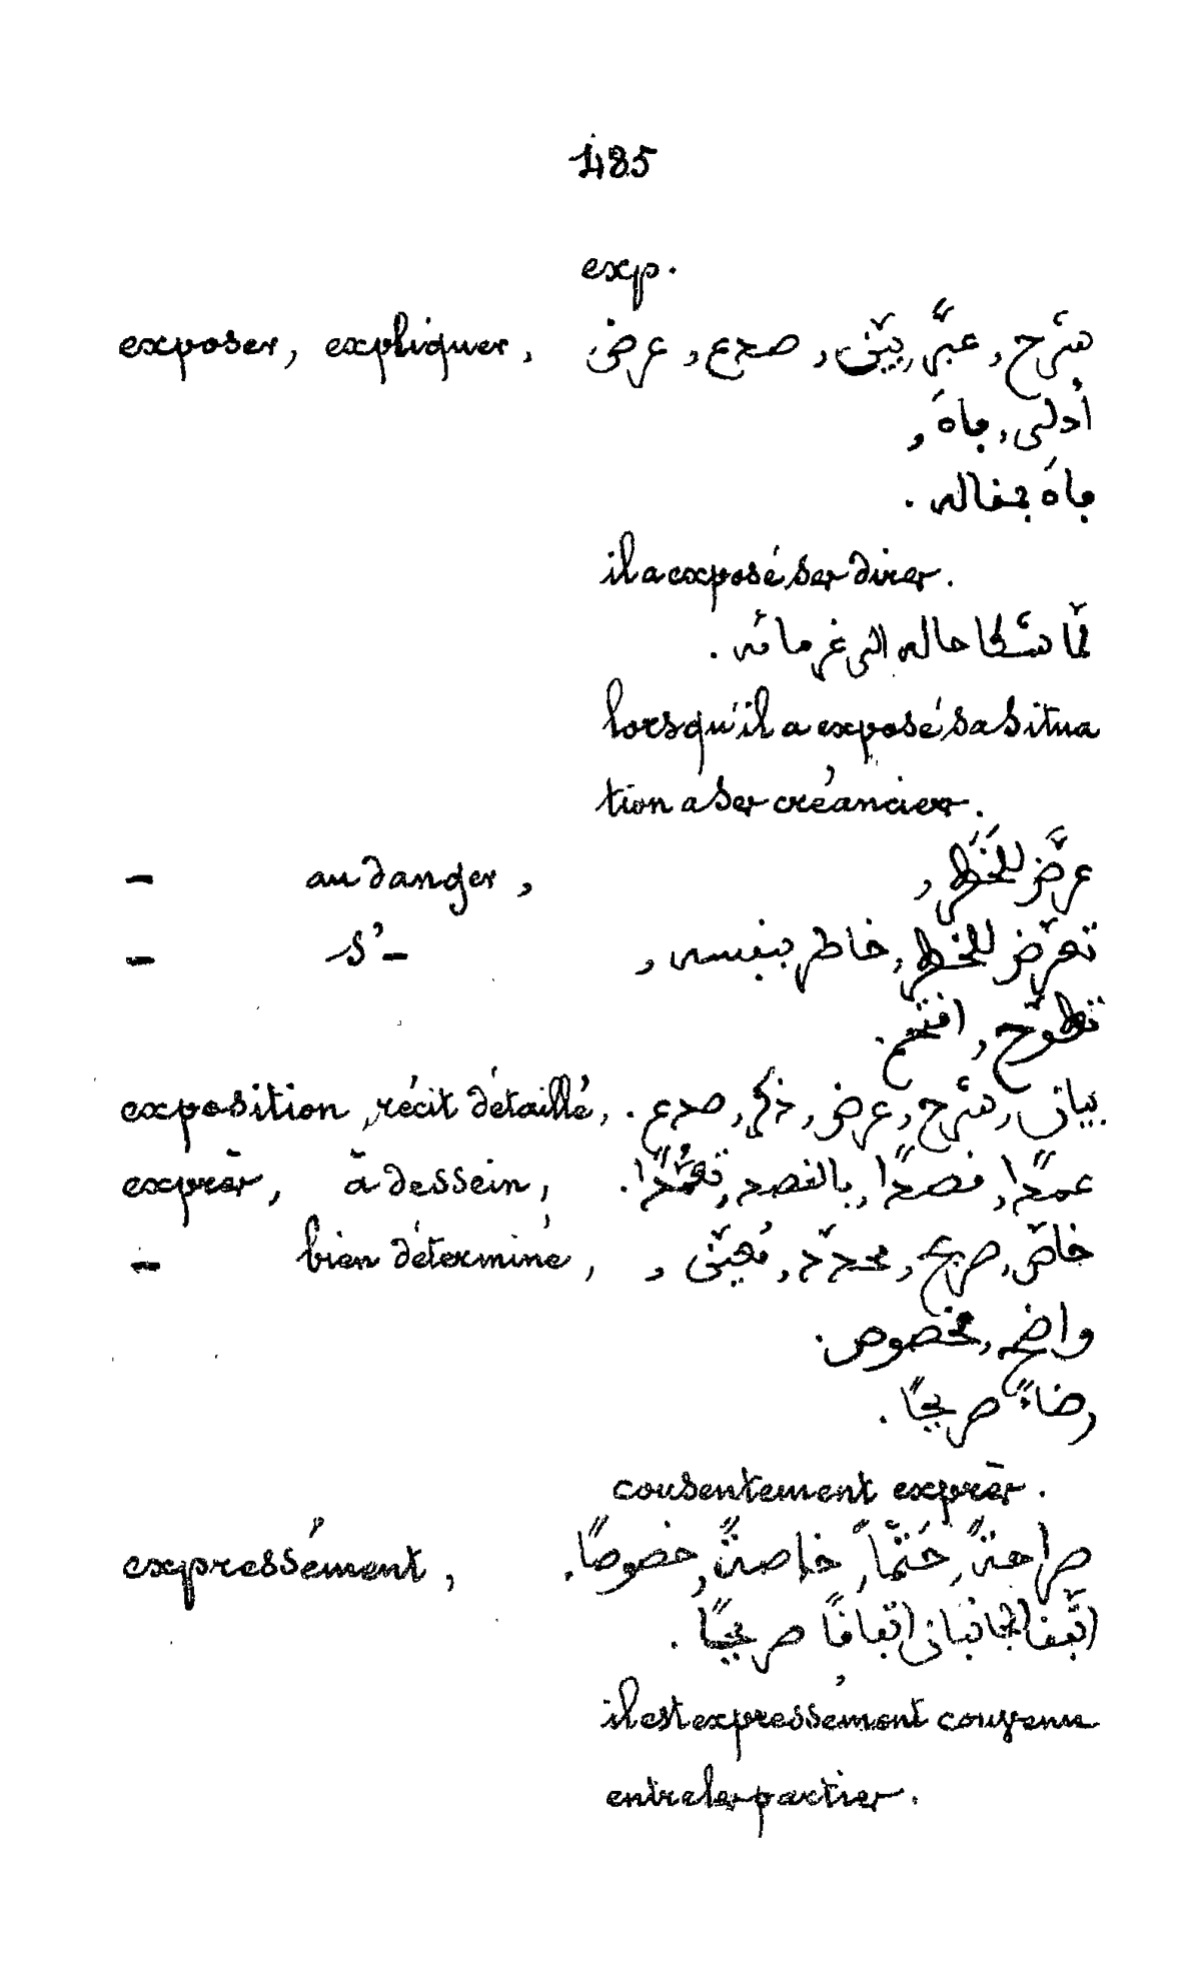 485
exp.
exposer, expliquer, شرح, عبّر, بيّن, صدع, عرض
أدلى, فاهَ,
فاهَ بمقاله.
il a exposé ses dires.
لمّا شكا حاله الى غرمائه.
lorsqu'il a exposé sa situa
tion a ses créanciers.
— au danger, عرّض للخَطَر,
— s'— تعرّض للخطر, خاطر بنفسه,
تطوّح, اقتحم.
exposition, récit détaillé, بيان, شرح, عرض, ذكر, صدع.
exprès, à dessein, عمدًا, قصدًا, بالقصد, تعمُّدًا.
— bien déterminé, خاصّ, صريح, محدّد, مُعيّن,
واضح, مخصوص.
رضاءً صريحًا.
consentement exprès.
expressément, صراحةً, حَتْمًا, خاصةً, خصوصًا.
اتّفق الجانبان اتفاقًا صريحًا.
il est expressément convenu
entre les parties.